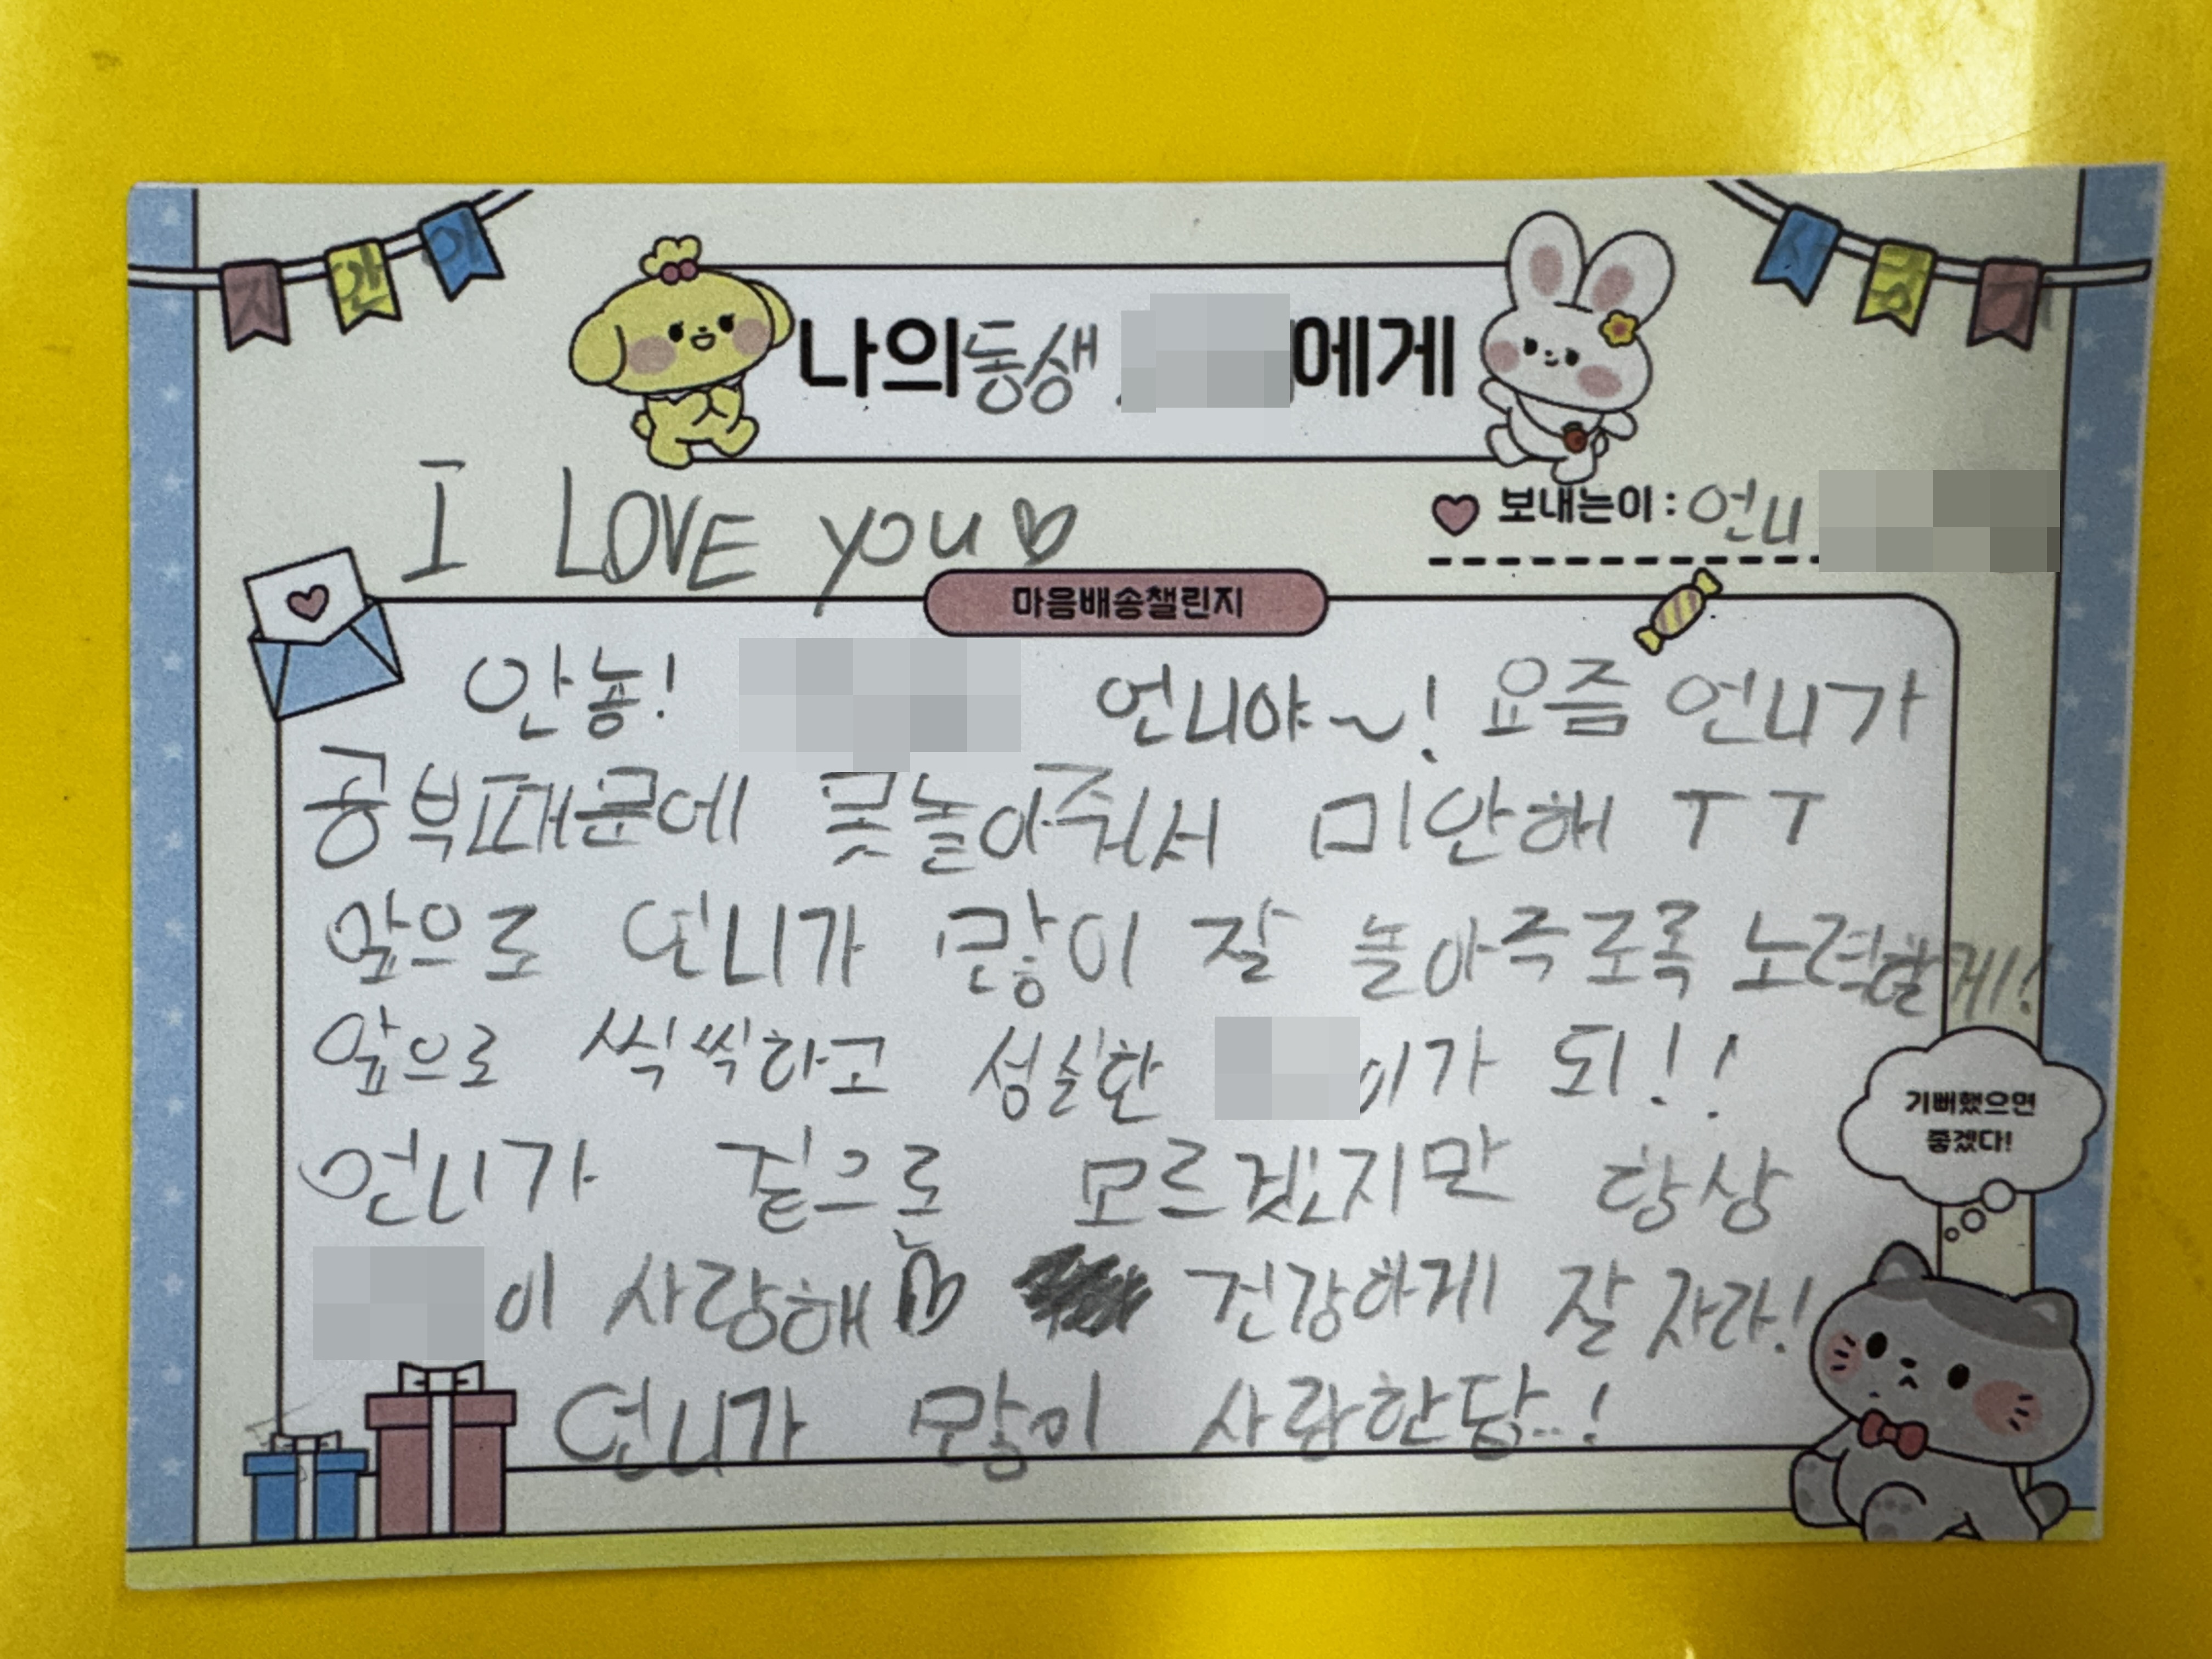 나의동생 에게
I LOVE you♡
보내는이 : 언니
마음배송챌린지
안뇽! 언니야~! 요즘 언니가
공부때문에 못놀아줘서 미안해 ㅜㅜ
앞으로 언니가 많이 잘 놀아주도록 노력할게!
앞으로 씩씩하고 성실한 이가 되!!
언니가 겉으론 모르겠지만 항상
이 사랑해♡ 건강하게 잘 자라!
언니가 많이 사랑한닭..!
기뻐했으면
좋겠다!